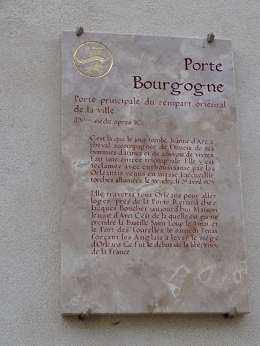 Porte
Bourgogne
Porte principale du rempart oriental
de la ville
IVème siècle après JC
C'est là que le jour tombé Jeanne d'Arc, à
cheval accompagnée de Dunois, de ses
hommes d'armes et de convois de vivres
fait une entrée triomphale. Elle y est
acclamée avec enthousiasme par les
Orléanais venus en masse l'accueillir
torches allumées, le vendredi 29 avril 1429
Elle traversa tout Orléans pour aller
loger près de la Porte Renard chez
Jacques Boucher aujourd'hui Maison
Jeanne d'Arc. C'est de là qu'elle est partie
prendre la Bastille Saint Loup, le
et le Fort des Tourelles, le samedi 7 mai,
forçant les Anglais à lever le siège
d'Orléans. Ce fut le début de la libération
de la France